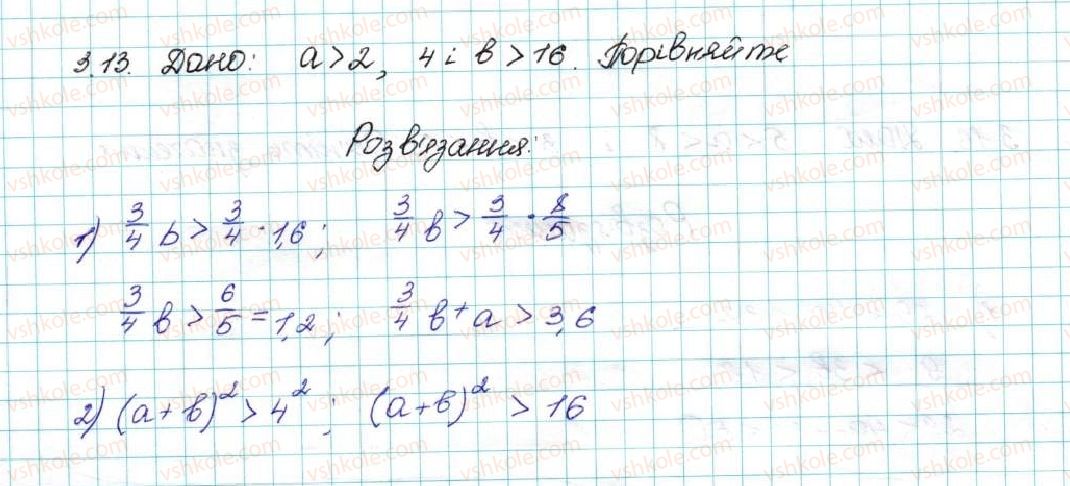 3.13. Дано: a > 2, 4 і b > 16. Порівняйте
Розв'язання:
1) 3/4 b > 3/4 · 1,6; 3/4 b > 3/4 · 8/5
3/4 b > 6/5 = 1,2; 3/4 b + a > 3,6
2) (a + b)² > 4²; (a + b)² > 16